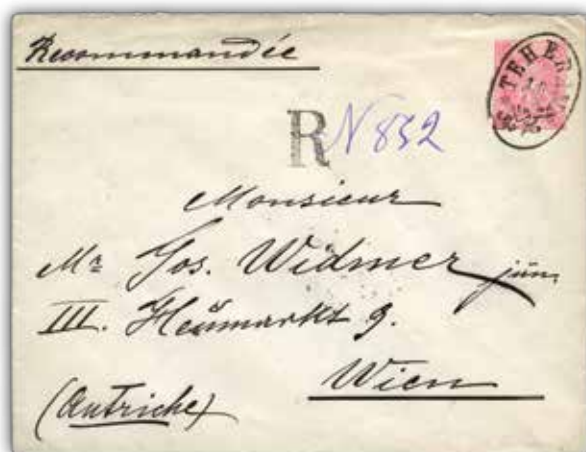 Recommandée
TEHERAN
R N 832
Monsieur
Mr Jos. Widmer jun.
III. Heŭmarkt 9.
Wien
(Autriche)